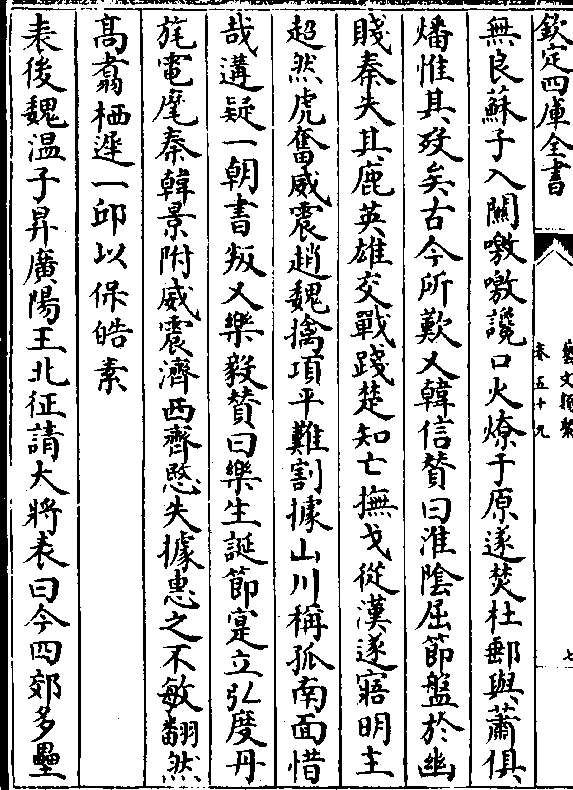 欽定四庫全書
藝文類聚
卷五十九
七
無良蘇子入關嗷嗷讒口火燎于原遂焚杜郵與蕭俱
燔惟其歿矣古今所歎又韓信贊曰淮陰屈節盤於幽
賤秦失其鹿英雄交戰踐楚知亡撫戈從漢遂寤明主
超然虎奮威震趙魏擒項平難割據山川稱孤南面惜
哉遘疑一朝書叛又樂毅贊曰樂生誕節寔立弘度丹
旄電麾秦韓景附威震濟西齊愍失據惠之不敏翻然
高翥栖遲一邱以保皓素
表後魏温子昇廣陽王北征請大將表曰今四郊多壘